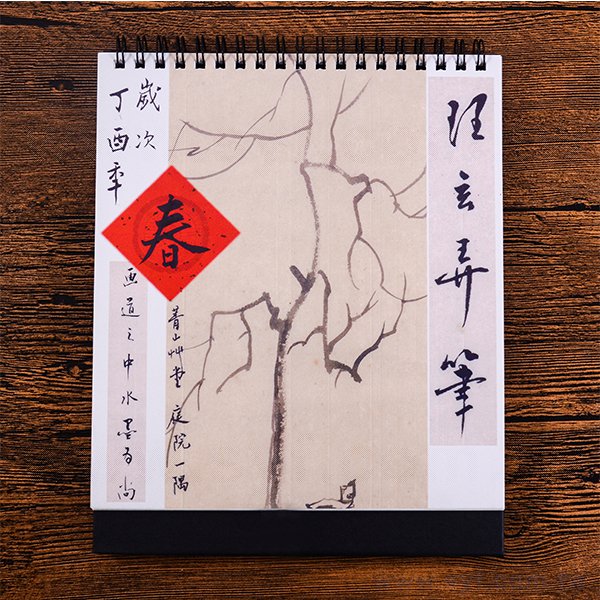 玄弄筆
歲次
丁酉年
春
菁山艸堂 庭院一隅
画道之中水墨为尚